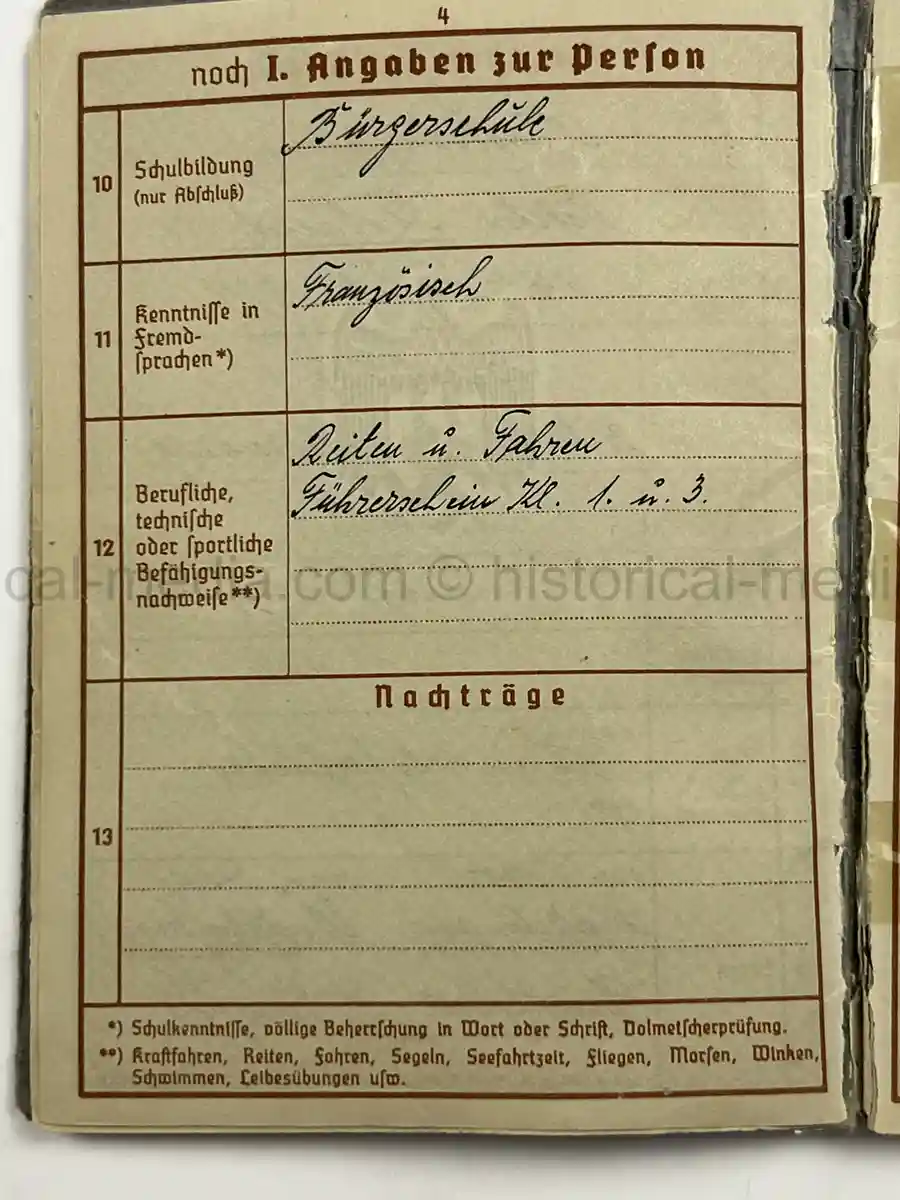 4
noch I. Angaben zur Person
10
Schulbildung
(nur Abschluß)
Bürgerschule
11
Kenntnisse in
Fremd-
sprachen*)
Französisch
12
Berufliche,
technische
oder sportliche
Befähigungs-
nachweise**)
Reiten u. Fahren
Führerschein Kl. 1. u. 3.
cal-media.com © historical-medi
13
Nachträge
*) Schulkenntnisse, völlige Beherrschung in Wort oder Schrift, Dolmetscherprüfung.
**) Kraftfahren, Reiten, Fahren, Segeln, Seefahrtzeit, Fliegen, Morsen, Winken,
Schwimmen, Leibesübungen usw.